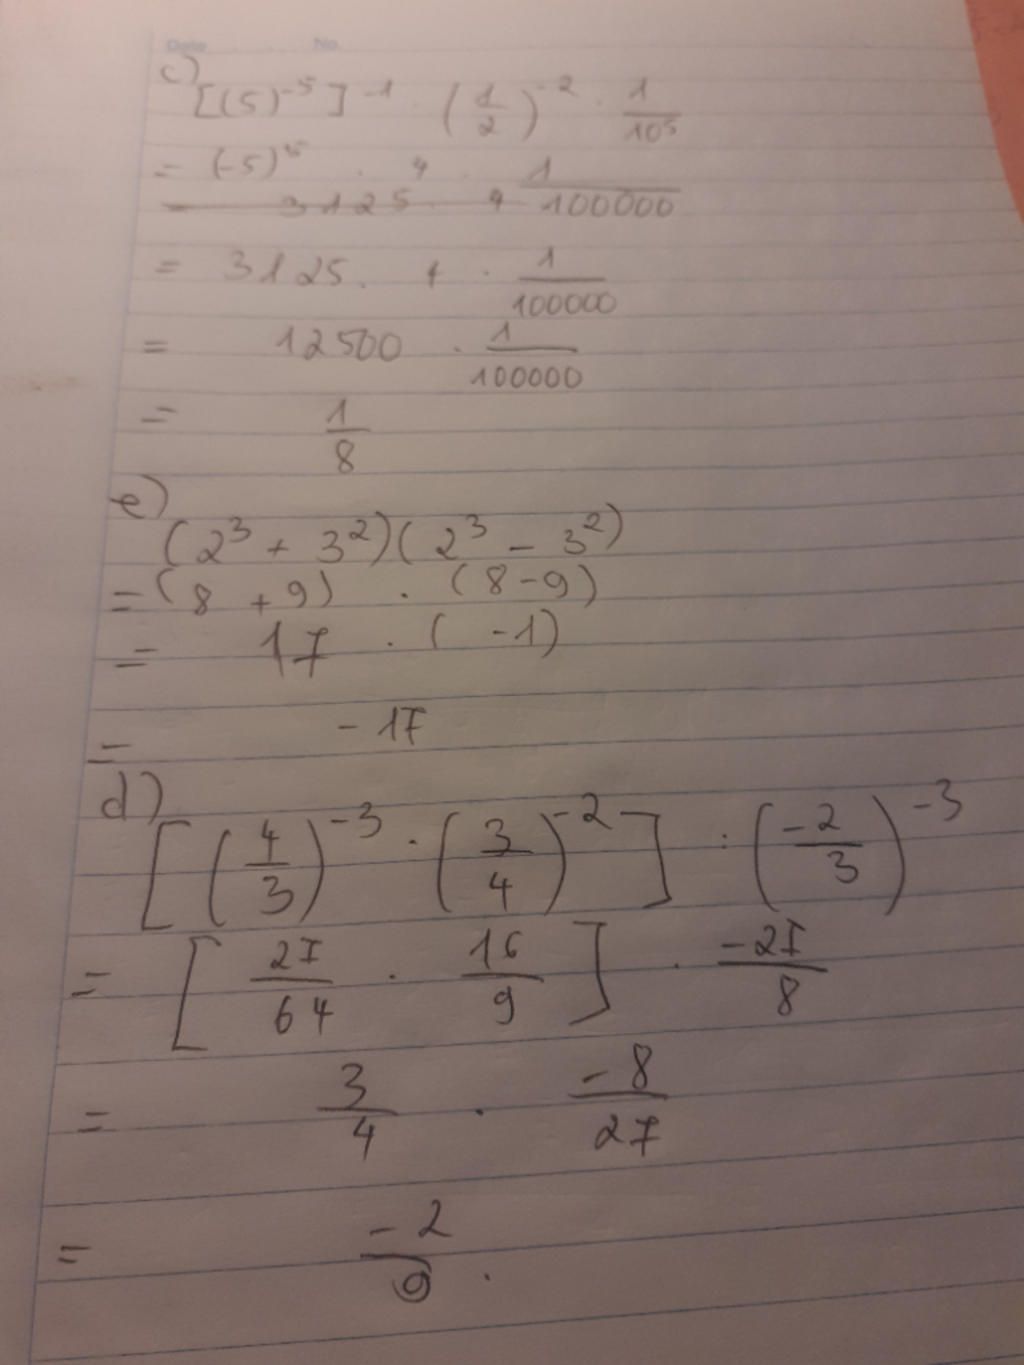 Date No.
c)
[(5)⁻⁵]⁻¹ · (1/2)⁻² · 1/10⁵
= (-5)⁵ · 4 · 1/100000
= 3125 · 4 1/100000
= 3125 . 4 · 1/100000
= 12500 · 1/100000
= 1/8
e)
(2³ + 3²)(2³ - 3²)
= (8 + 9) · (8-9)
= 17 · (-1)
= -17
d)
[(4/3)⁻³ · (3/4)⁻²] : (-2/3)⁻³
= [27/64 · 16/9] · -27/8
= 3/4 · -8/27
= -2/9 .